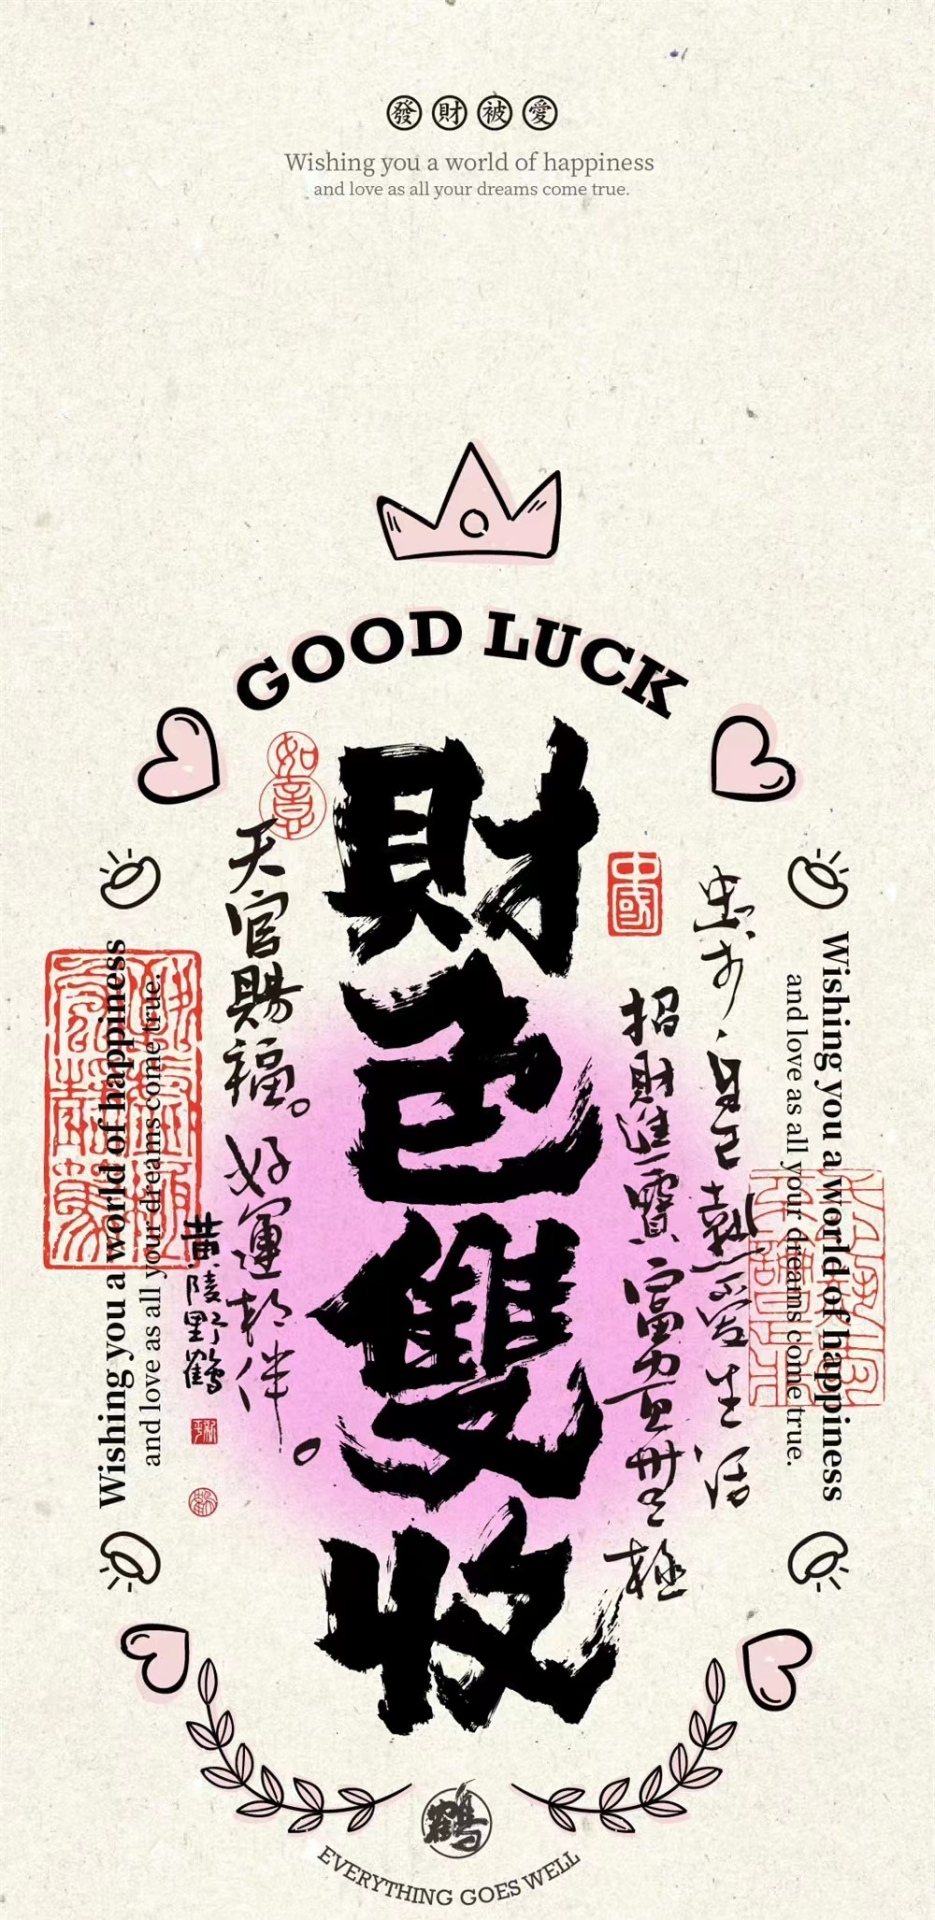 發財被愛
Wishing you a world of happiness
and love as all your dreams come true.
GOOD LUCK
Wishing you a world of happiness
and love as all your dreams come true.
自己熱愛生活
招財進寶富
中國
財色雙收
如意
天官賜福。好運相伴。
黄陵野鶴
Wishing you a world of happiness
and love as all your dreams come true.
鶴
EVERYTHING GOES WELL